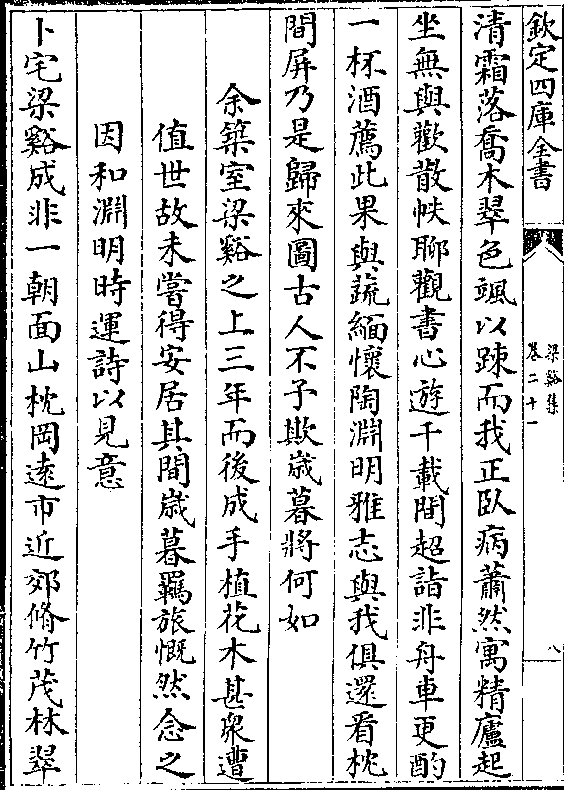 欽定四庫全書
梁谿集
卷二十一
八
清霜落喬木翠色颯以踈而我正臥病蕭然寓精廬起
坐無與歡散帙聊觀書心遊千載間超詣非舟車更酌
一杯酒薦此果與蔬緬懷陶淵明雅志與我俱還看枕
間屏乃是歸來圖古人不予欺歲暮將何如
余築室梁谿之上三年而後成手植花木甚衆遭
值世故未嘗得安居其間歲暮羈旅慨然念之
因和淵明時運詩以見意
卜宅梁谿成非一朝面山枕岡逺市近郊脩竹茂林翠